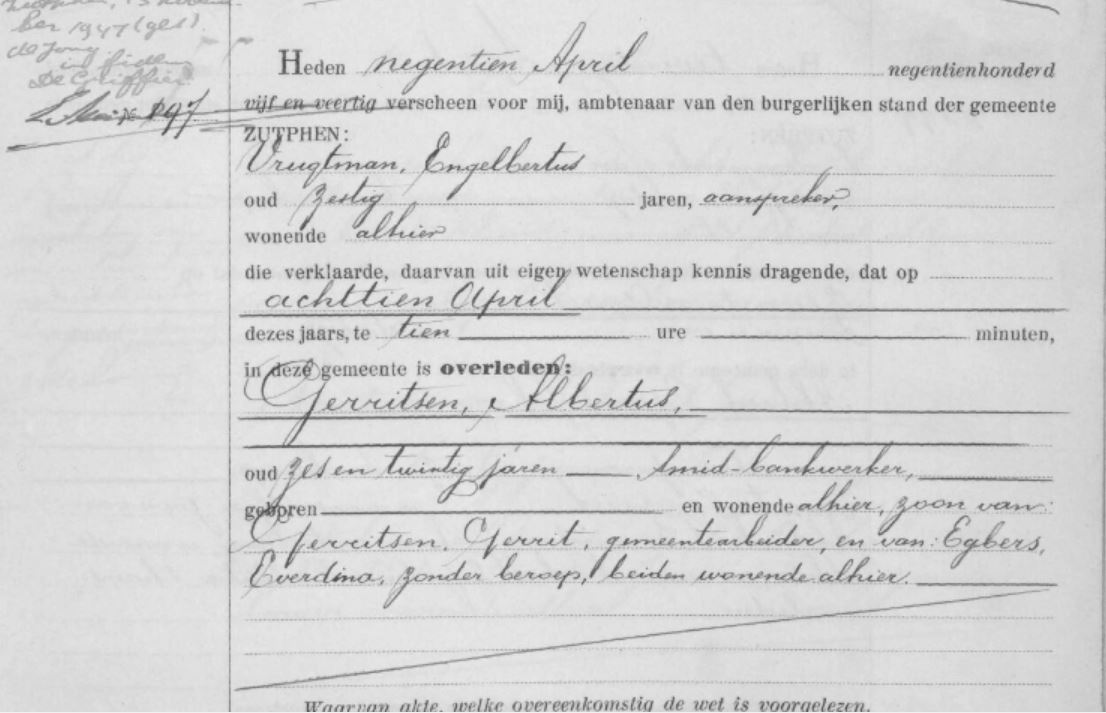 ber 1947 (get).
de Jong
De Griffier
Heden negentien April negentienhonderd
vijf en veertig verscheen voor mij, ambtenaar van den burgerlijken stand der gemeente
ZUTPHEN:
Vrugtman, Engelbertus
oud zestig jaren, aanspreker,
wonende alhier
die verklaarde, daarvan uit eigen wetenschap kennis dragende, dat op
achttien April
dezes jaars, te tien ure minuten,
in deze gemeente is overleden:
Gerritsen, Albertus,
oud zes en twintig jaren smid-bankwerker,
geboren en wonende alhier, zoon van:
Gerritsen, Gerrit, gemeentearbeider, en van: Egbers,
Everdina, zonder beroep, beiden wonende alhier.
Waarvan akte, welke overeenkomstig de wet is voorgelezen.